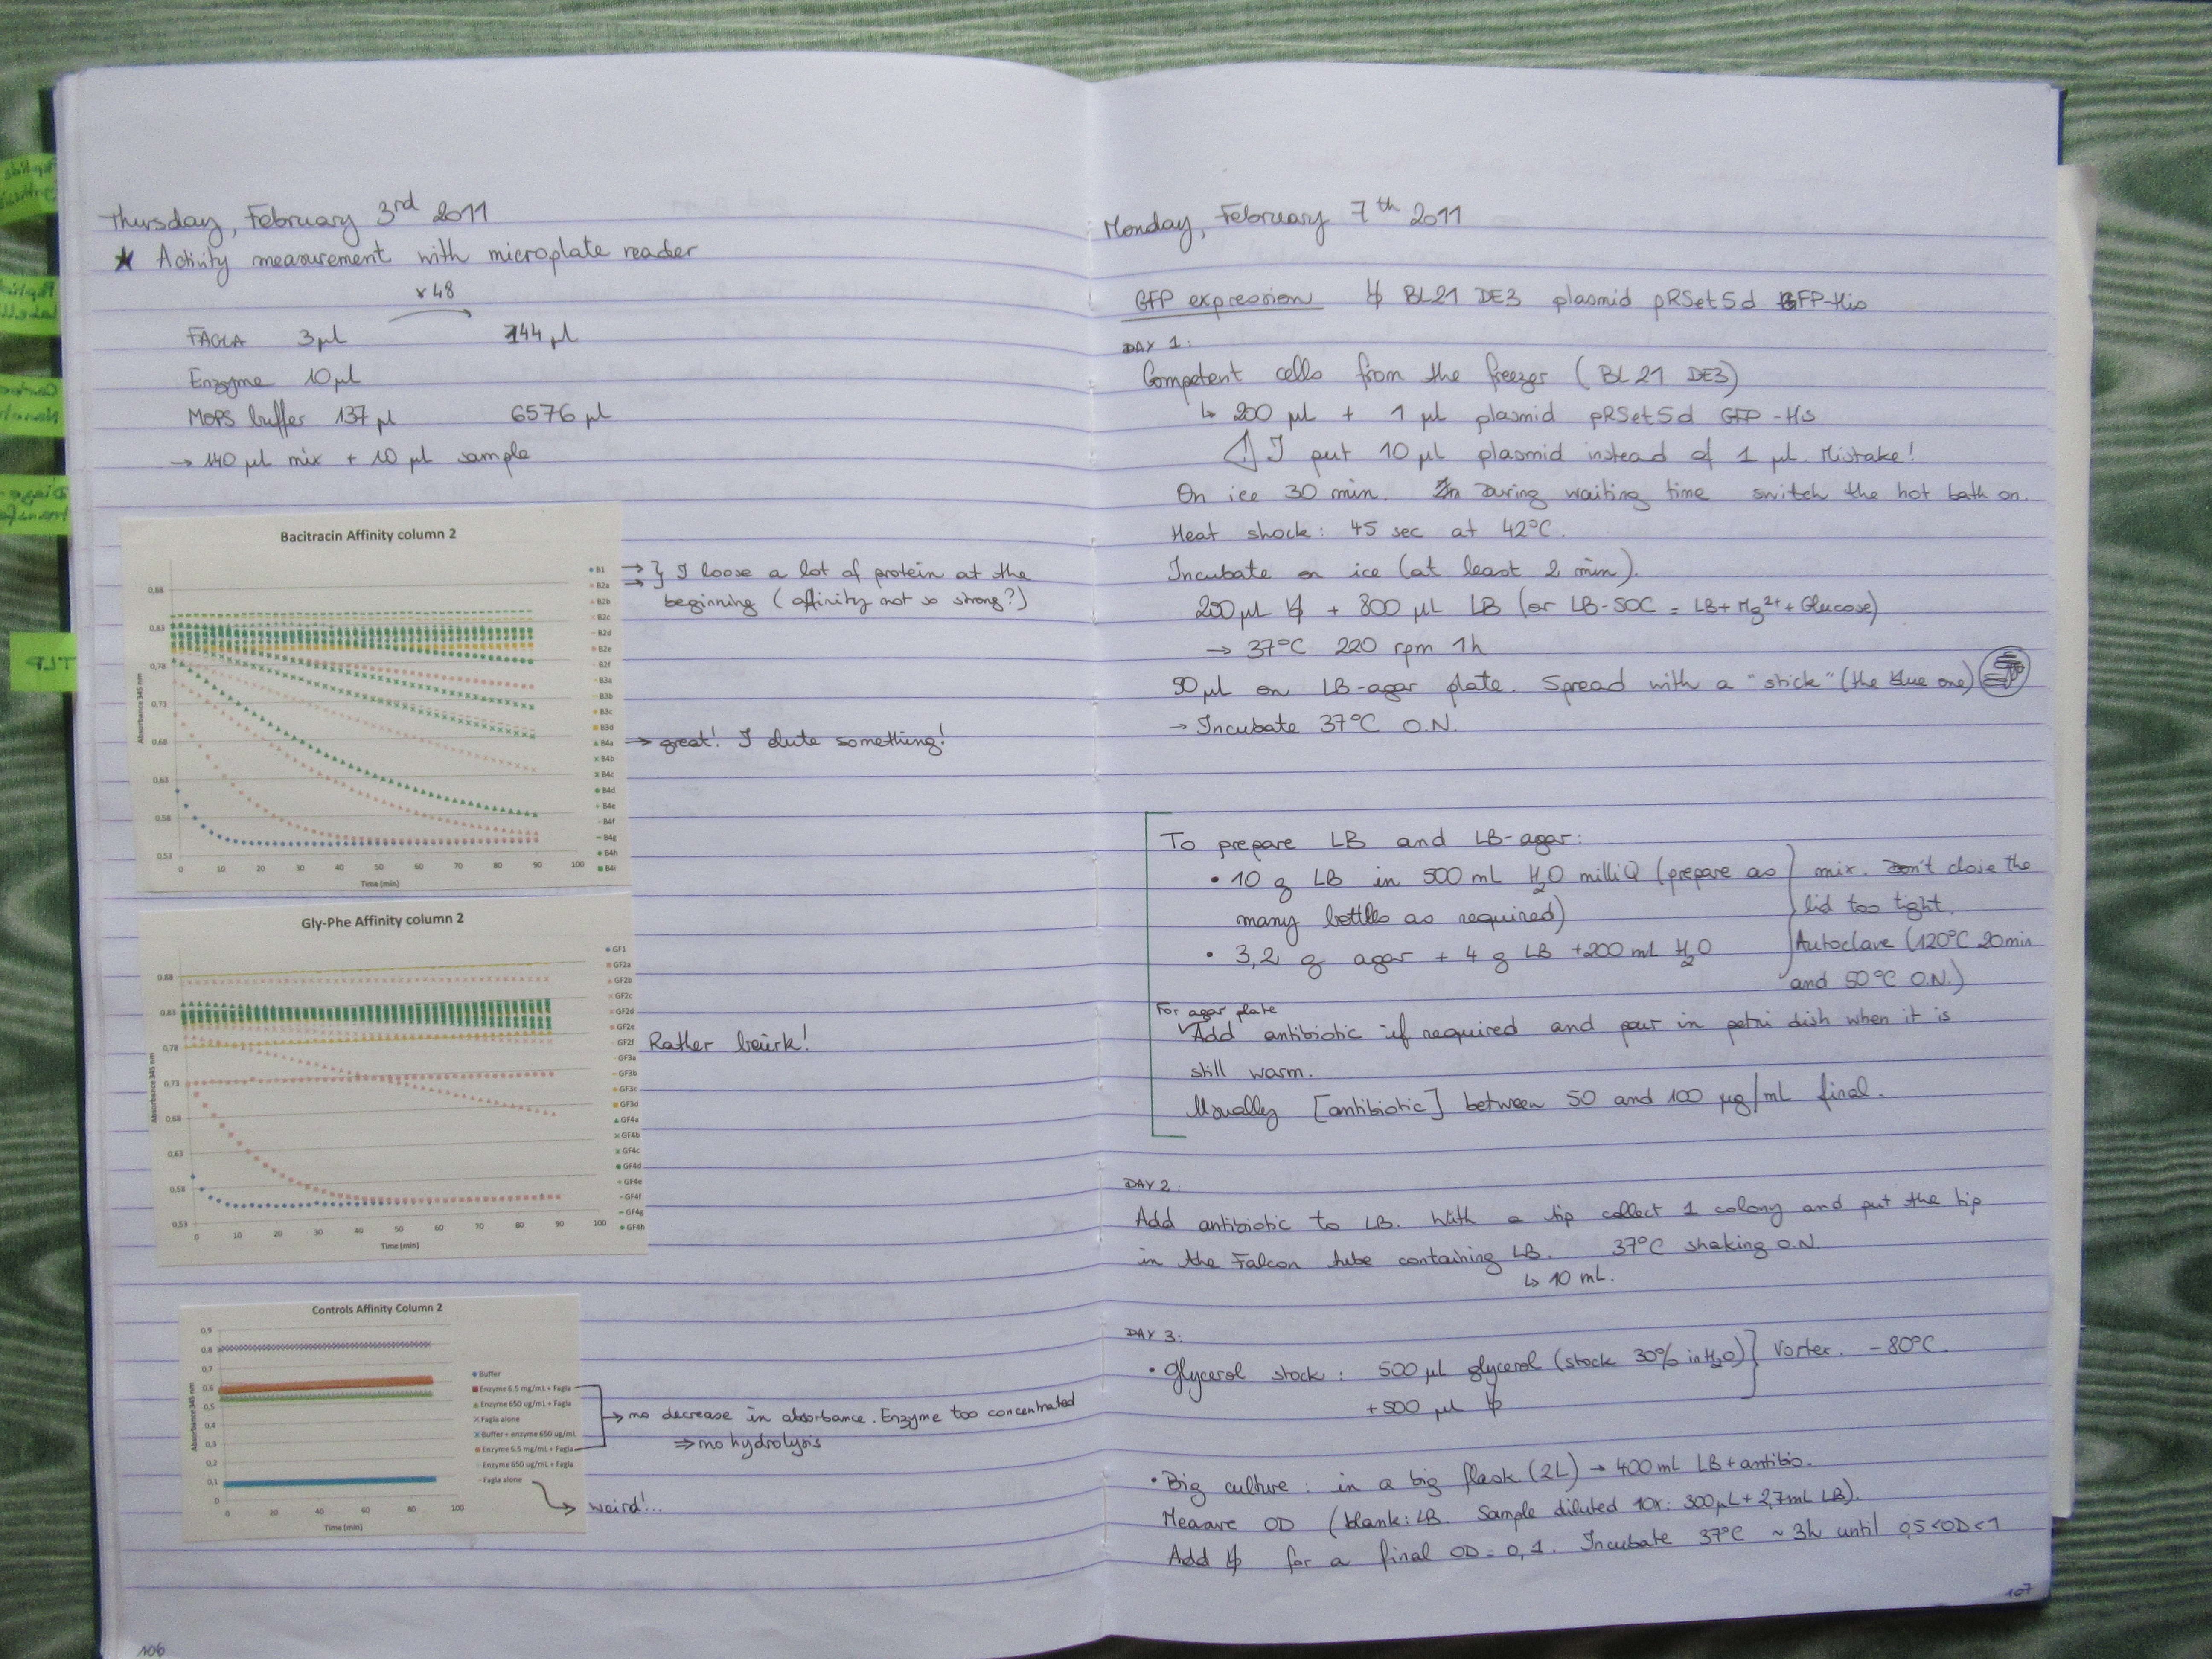 Thursday, February 3rd 2011
★ Activity measurement with microplate reader
x48
FAGLA 3µl 144 µl
Enzyme 10µl
MOPS buffer 137 µl 6576 µl
→ 140 µl mix + 10 µl sample
Bacitracin Affinity column 2
Absorbance 345 nm
0,88
0,83
0,78
0,73
0,68
0,63
0,58
0,53
0 10 20 30 40 50 60 70 80 90 100
Time (min)
B1
B2a
B2b
B2c
B2d
B2e
B2f
B3a
B3b
B3c
B3d
B4a
B4b
B4c
B4d
B4e
B4f
B4g
B4h
B4i
→ } I loose a lot of protein at the
→ beginning (affinity not so strong?)
→ great! I elute something!
Gly-Phe Affinity column 2
Absorbance 345 nm
0,88
0,83
0,78
0,73
0,68
0,63
0,58
0,53
0 10 20 30 40 50 60 70 80 90 100
Time (min)
GF1
GF2a
GF2b
GF2c
GF2d
GF2e
GF2f
GF3a
GF3b
GF3c
GF3d
GF4a
GF4b
GF4c
GF4d
GF4e
GF4f
GF4g
GF4h
Rather beurk!
Controls Affinity Column 2
Absorbance 345 nm
0,9
0,8
0,7
0,6
0,5
0,4
0,3
0,2
0,1
0
0 20 40 60 80 100
Time (min)
Buffer
Enzyme 6.5 mg/mL + Fagla
Enzyme 650 ug/mL + Fagla
Fagla alone
Buffer + enzyme 650 ug/mL
Enzyme 6.5 mg/mL + Fagla
Enzyme 650 ug/mL + Fagla
Fagla alone
→ no decrease in absorbance. Enzyme too concentrated
⇒ no hydrolysis
→ weird!...
106
TLP
Monday, February 7th 2011
GFP expression ↳ BL21 DE3 plasmid pRSet5d GFP-His
DAY 1:
Competent cells from the freezer (BL21 DE3)
↳ 200 µl + 1 µl plasmid pRSet5d GFP-His
⚠ I put 10 µl plasmid instead of 1 µl. Mistake!
On ice 30 min. During waiting time switch the hot bath on.
Heat shock: 45 sec at 42°C.
Incubate on ice (at least 2 min).
200 µl + 800 µl LB (or LB-SOC = LB + Mg2+ + Glucose)
→ 37°C 220 rpm 1h
50 µl on LB-agar plate. Spread with a "stick" (the blue one)
→ Incubate 37°C O.N.
To prepare LB and LB-agar:
• 10 g LB in 500 mL H2O milliQ (prepare as
many bottles as required)
• 3,2 g agar + 4 g LB + 200 mL H2O
mix. Don't close the
lid too tight.
Autoclave (120°C 20min
and 50°C O.N.)
For agar plate
Add antibiotic if required and pour in petri dish when it is
still warm.
Usually [antibiotic] between 50 and 100 µg/mL final.
DAY 2:
Add antibiotic to LB. With a tip collect 1 colony and put the tip
in the Falcon tube containing LB. 37°C shaking O.N.
↳ 10 mL.
DAY 3:
• Glycerol stock: 500 µl glycerol (stock 30% in H2O) } Vortex. -80°C.
+500 µl
• Big culture: in a big flask (2L) → 400 mL LB + antibio.
Measure OD (blank: LB. Sample diluted 10x: 300µL + 2,7mL LB).
Add for a final OD = 0,1. Incubate 37°C ~ 3h until 0,5<OD<1
107